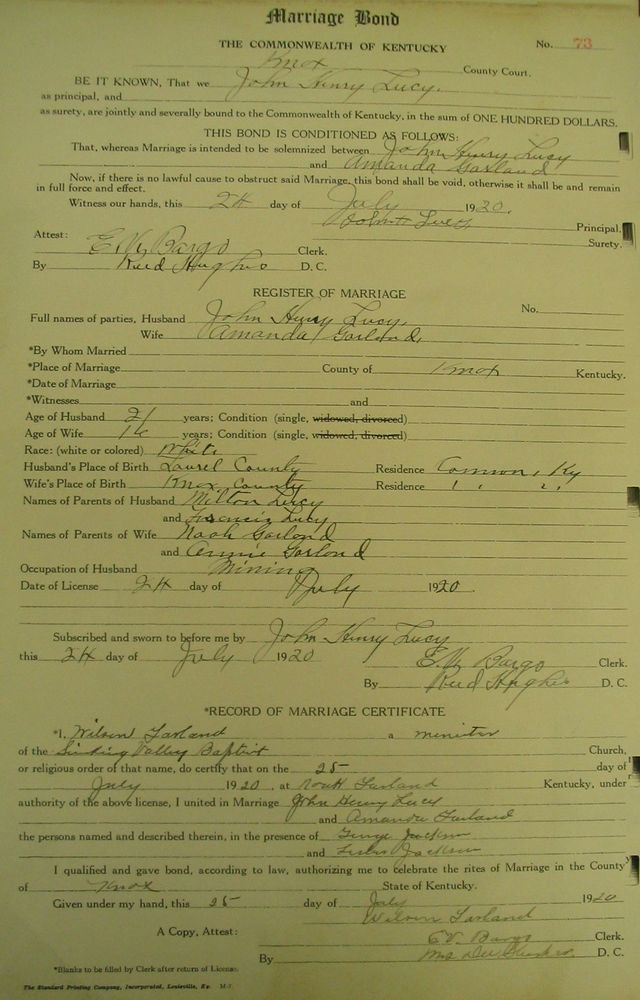 Marriage Bond
THE COMMONWEALTH OF KENTUCKY No. 73
Knox County Court.
BE IT KNOWN, That we John Henry Lucy.
as principal, and
as surety, are jointly and severally bound to the Commonwealth of Kentucky, in the sum of ONE HUNDRED DOLLARS.
THIS BOND IS CONDITIONED AS FOLLOWS:
That, whereas Marriage is intended to be solemnized between John Henry Lucy
and Amanda Garland
Now, if there is no lawful cause to obstruct said Marriage, this bond shall be void, otherwise it shall be and remain
in full force and effect.
Witness our hands, this 24 day of July 1920.
John H Lucy Principal.
Surety.
Attest: E.V. Bargo Clerk.
By Reed Hughes D. C.
REGISTER OF MARRIAGE
Full names of parties, Husband John Henry Lucy. No.
Wife Amanda Garland,
*By Whom Married
*Place of Marriage County of Knox Kentucky.
*Date of Marriage
*Witnesses and
Age of Husband 21 years; Condition (single, widowed, divorced)
Age of Wife years; Condition (single, widowed, divorced)
Race: (white or colored) White
Husband's Place of Birth Laurel County Residence Ky
Wife's Place of Birth Knox County Residence " "
Names of Parents of Husband Milton Lucy
and Francis Lucy
Names of Parents of Wife Noah Garland
and Annie Garland
Occupation of Husband Mining
Date of License 24 day of July 1920.
Subscribed and sworn to before me by John Henry Lucy
this 24 day of July 1920 E.V. Bargo Clerk.
By Reed Hughes D. C.
*RECORD OF MARRIAGE CERTIFICATE
*I, Wilson Garland a minister
of the Sinking Valley Baptist Church,
or religious order of that name, do certify that on the 25 day of
July 1920, at Noah Garland Kentucky, under
authority of the above license, I united in Marriage John Henry Lucy
and Amanda Garland
the persons named and described therein, in the presence of George Jackson
and Jackson
I qualified and gave bond, according to law, authorizing me to celebrate the rites of Marriage in the County
of Knox State of Kentucky.
Given under my hand, this 25 day of July 1920
Wilson Garland
A Copy, Attest: E.V. Bargo Clerk.
By D. C.
*Blanks to be filled by Clerk after return of License.
The Standard Printing Company, Incorporated, Louisville, Ky.